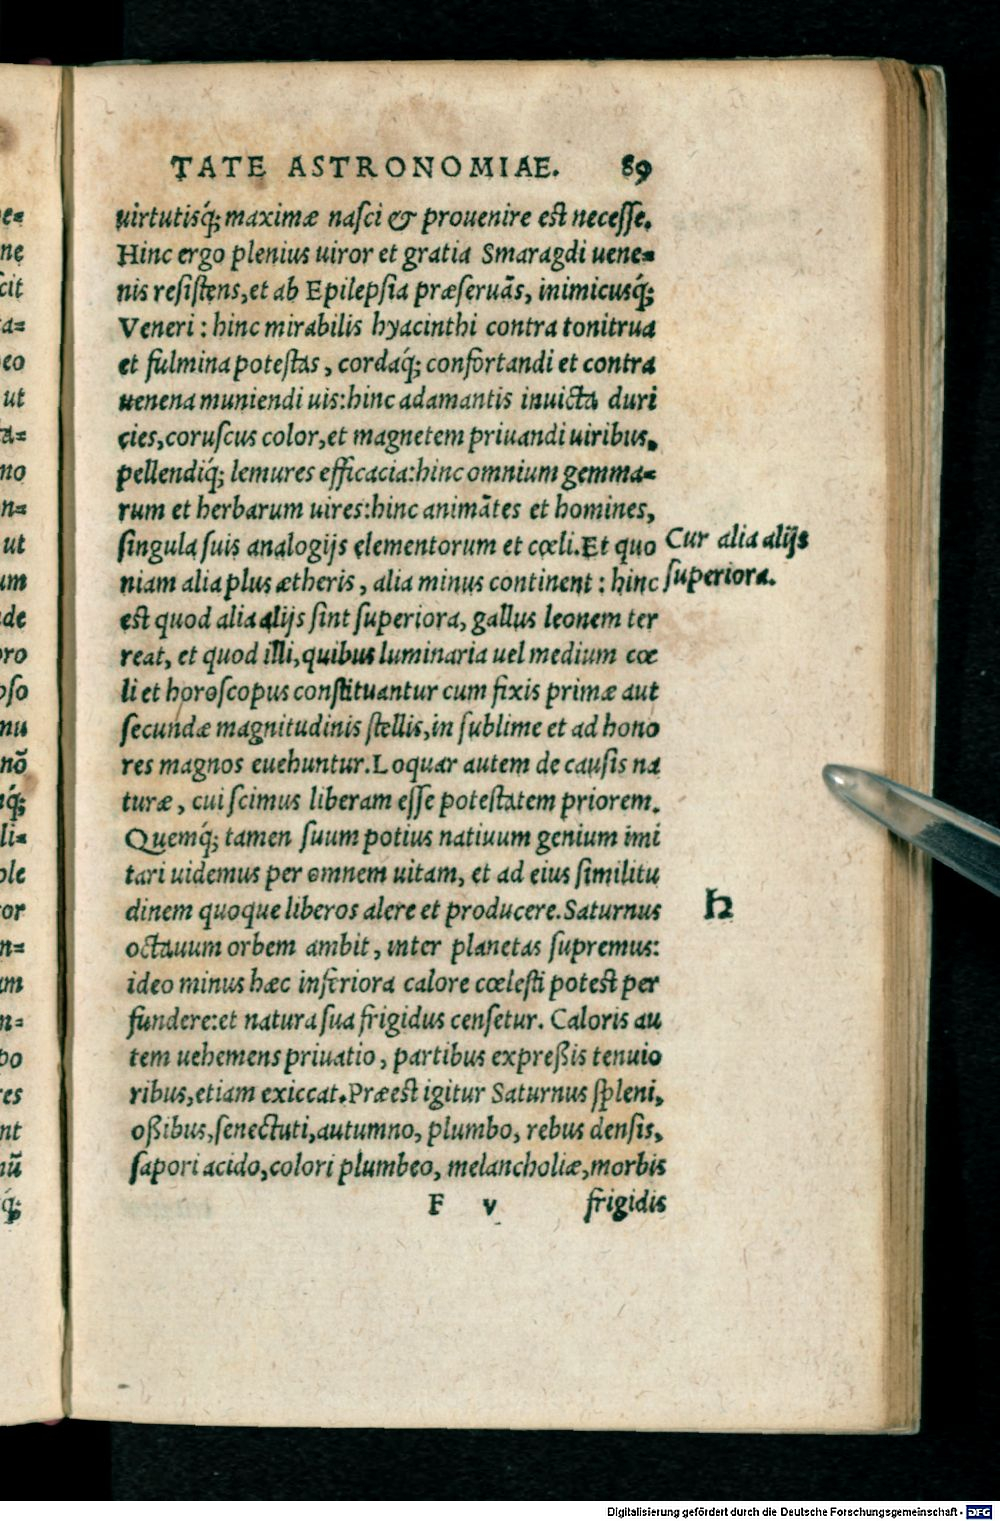 TATE ASTRONOMIAE. 89
uirtutisq́; maximæ nasci & prouenire est necesse.
Hinc ergo plenius uiror et gratia Smaragdi uene=
nis resistens, et ab Epilepsia præseruãs, inimicusq́;
Veneri : hinc mirabilis hyacinthi contra tonitrua
et fulmina potestas, cordaq́; confortandi et contra
uenena muniendi uis: hinc adamantis inuicta duri
cies, coruscus color, et magnetem priuandi uiribus,
pellendiq́; lemures efficacia: hinc omnium gemma=
rum et herbarum uires: hinc animãtes et homines,
singula suis analogijs elementorum et cœli. Et quo
niam alia plus ætheris, alia minus continent : hinc
est quod alia alijs sint superiora, gallus leonem ter
reat, et quod illi, quibus luminaria uel medium cœ
li et horoscopus constituantur cum fixis primæ aut
secundæ magnitudinis stellis, in sublime et ad hono
res magnos euehuntur. Loquar autem de causis na
turæ, cui scimus liberam esse potestatem priorem.
Quemq́; tamen suum potius natiuum genium imi
tari uidemus per omnem uitam, et ad eius similitu
dinem quoque liberos alere et producere. Saturnus
octauum orbem ambit, inter planetas supremus:
ideo minus hæc inferiora calore cœlesti potest per
fundere: et natura sua frigidus censetur. Caloris au
tem uehemens priuatio, partibus expreßis tenuio
ribus, etiam exiccat. Præest igitur Saturnus spleni,
oßibus, senectuti, autumno, plumbo, rebus densis,
sapori acido, colori plumbeo, melancholiæ, morbis
F v frigidis
Cur alia alijs
superiora.
♄
e=
nę
cit
a=
eo
ut
ta=
no
n=
ut
um
de
pro
pso
nu
nõ
q́;
li=
ple
or
n=
um
n=
po
res
nt
nũ
q́;
Digitalisierung gefördert durch die Deutsche Forschungsgemeinschaft - DFG